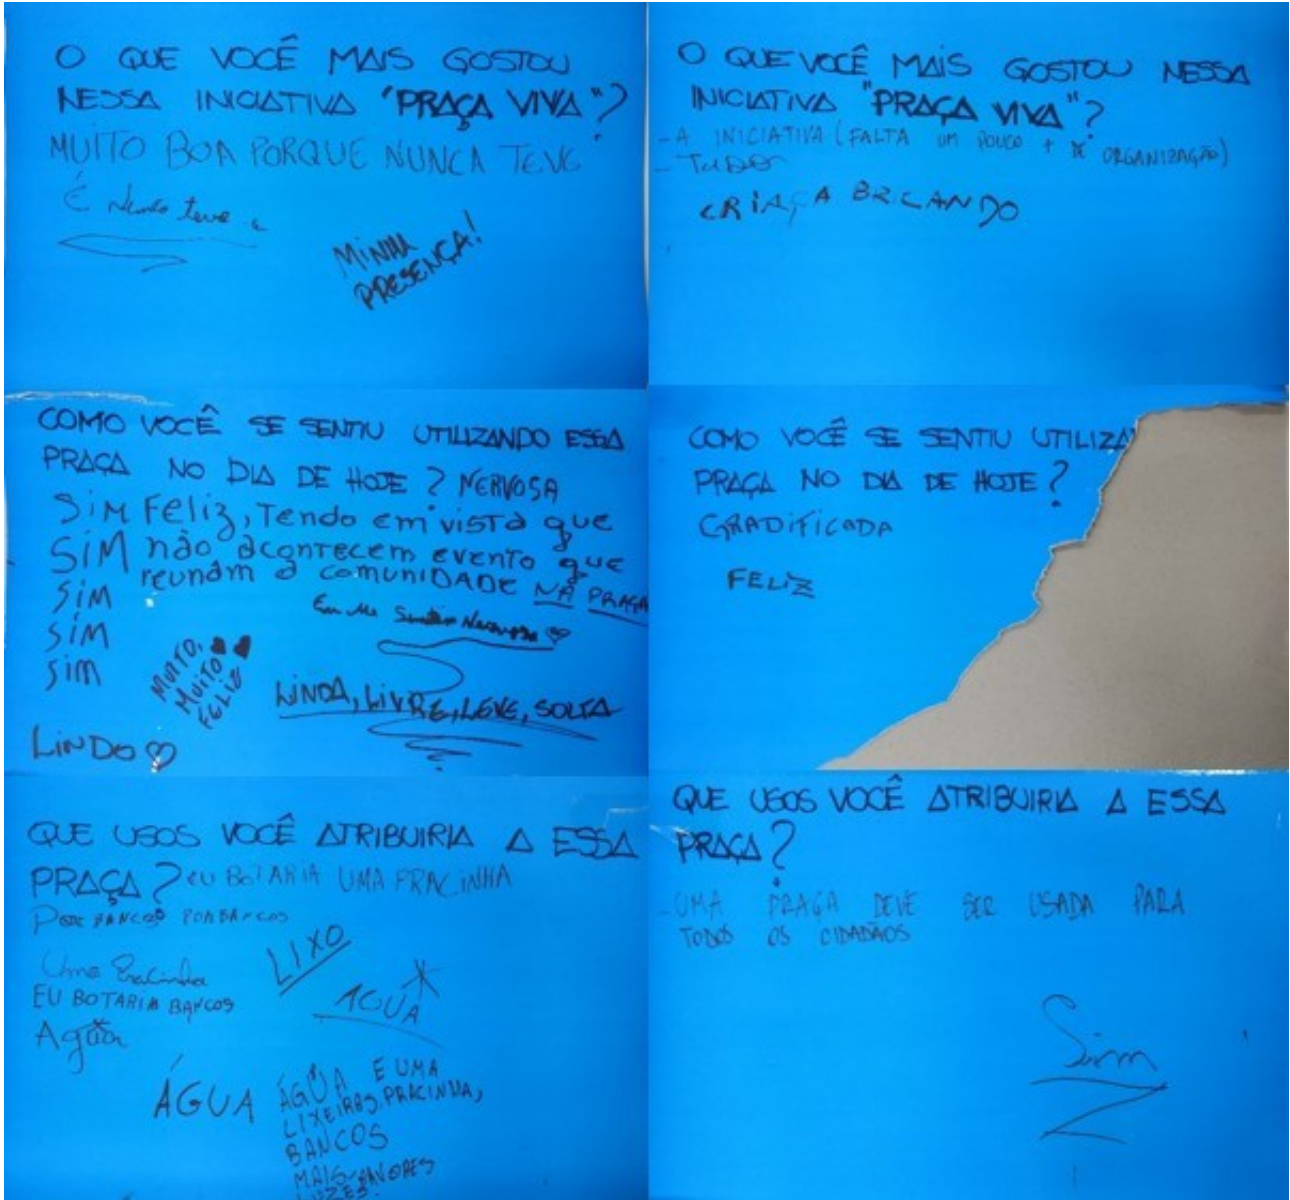 O QUE VOCÊ MAIS GOSTOU
NESSA INICIATIVA "PRAÇA VIVA"?
MUITO BOA PORQUE NUNCA TEVE
É teve
MINHA
PRESENÇA!
O QUE VOCÊ MAIS GOSTOU NESSA
INICIATIVA "PRAÇA VIVA"?
- A INICIATIVA (FALTA UM POUCO + DE ORGANIZAÇÃO)
- TUDO
CRIAÇA BRICANDO
COMO VOCÊ SE SENTIU UTILIZANDO ESSA
PRAÇA NO DIA DE HOJE? NERVOSA
SIM Feliz, Tendo em vista que
SIM não acontecem evento que
reunam a comunidade NA PRAÇA
SIM
SIM
SIM
Eu me Nervosa
MUITO,
MUITO
FELIZ
LINDA, LIVRE, LEVE, SOLTA
LINDO
COMO VOCÊ SE SENTIU UTILIZA
PRAÇA NO DIA DE HOJE?
GRADIFICADA
FELIZ
QUE USOS VOCÊ ATRIBUIRIA A ESSA
PRAÇA? EU BOTARIA UMA PRACINHA
BANCOS
LIXO
Uma Pracinha
EU BOTARIA BANCOS
AGUA
Agua
ÁGUA
ÁGUA E UMA
LIXEIRAS, PRACINHA,
BANCOS
MAIS ARVORES
LUZES.
QUE USOS VOCÊ ATRIBUIRIA A ESSA
PRAÇA?
- UMA PRAÇA DEVE SER USADA PARA
TODOS OS CIDADÃOS
Sim